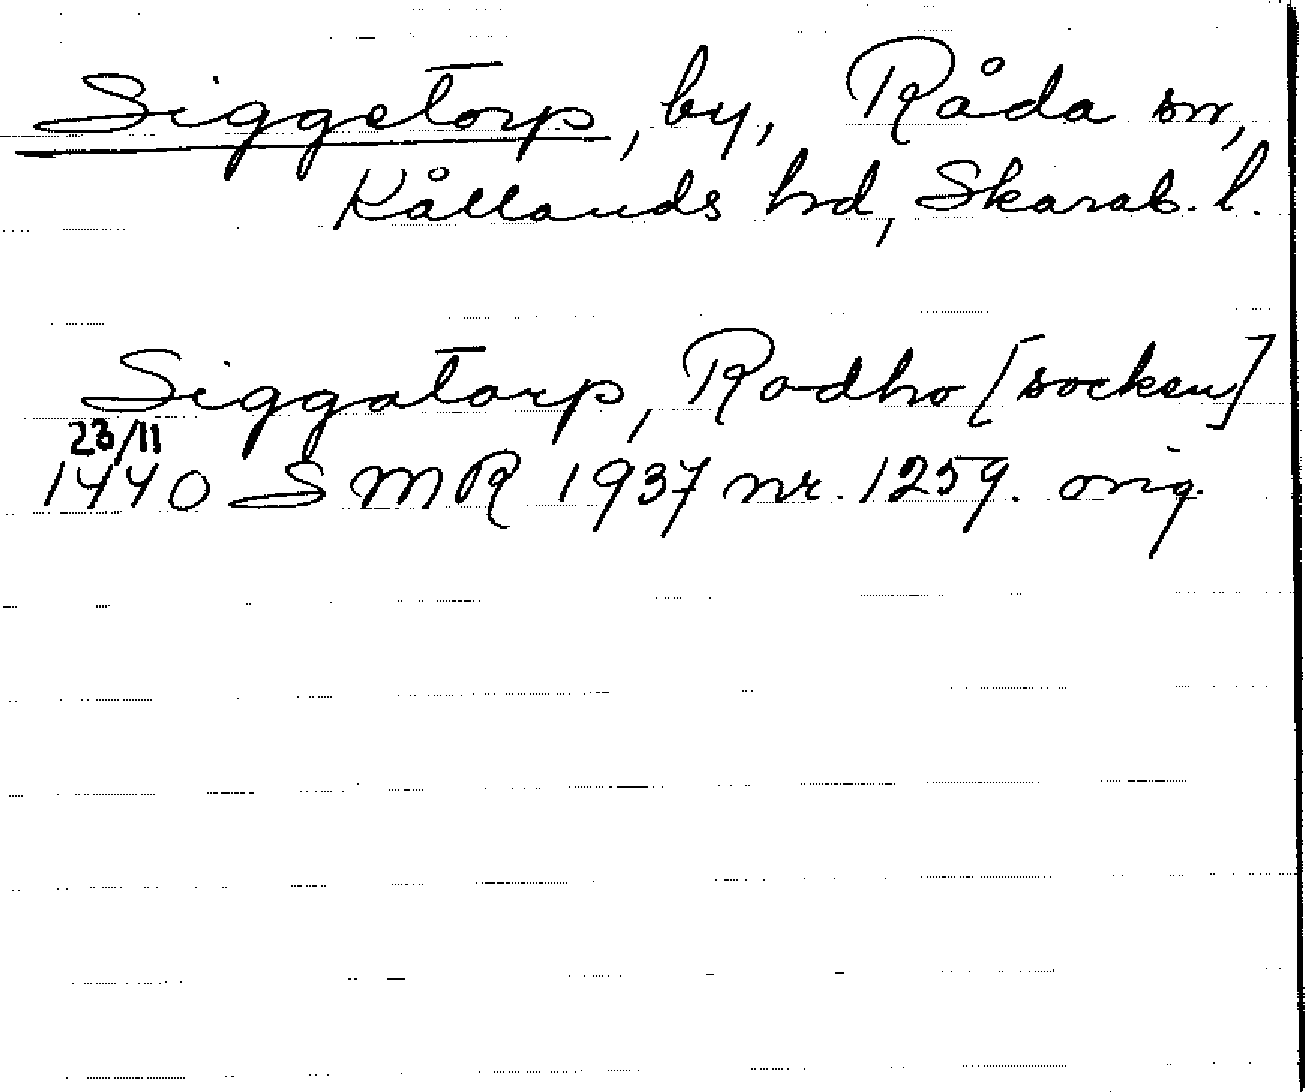 Siggetorp, by, Råda sn,
Kållands hrd, Skarab. l.
Siggatorp, Radho [socken]
23/11
1440 SMR 1937 nr. 1259. orig.